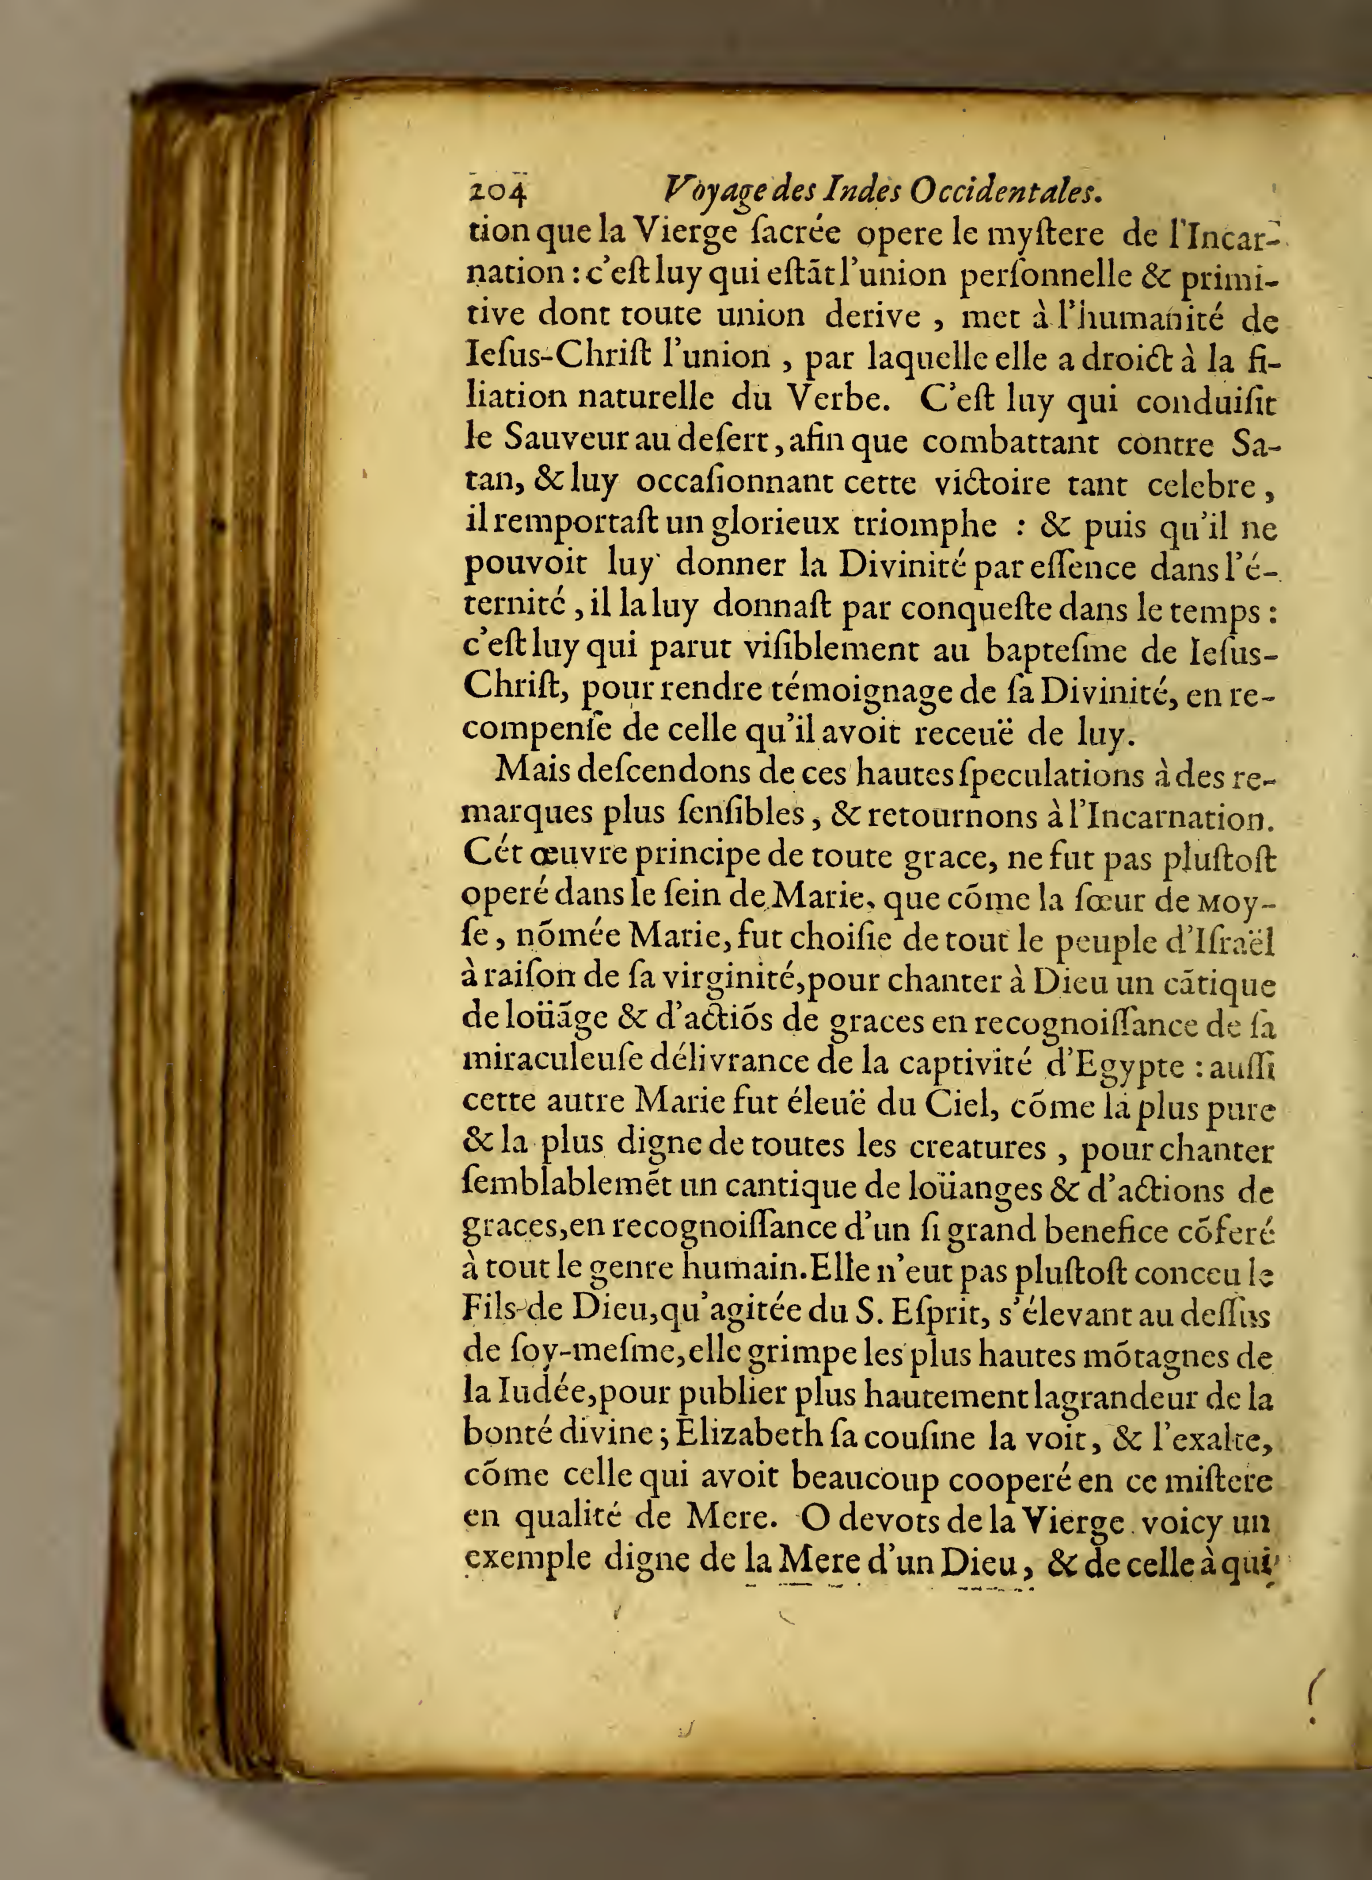 204 Voyage des Indes Occidentales.
tion que la Vierge ſacrée opere le myſtere de l'Incar-
nation : c'eſt luy qui eſtãt l'union perſonnelle & primi-
tive dont toute union derive , met à l'humanité de
Ieſus-Chriſt l'union , par laquelle elle a droict à la fi-
liation naturelle du Verbe. C'eſt luy qui conduiſit
le Sauveur au deſert, afin que combattant contre Sa-
tan, & luy occaſionnant cette victoire tant celebre,
il remportaſt un glorieux triomphe : & puis qu'il ne
pouvoit luy donner la Divinité par eſſence dans l'é-
ternité, il la luy donnaſt par conqueſte dans le temps :
c'eſt luy qui parut viſiblement au bapteſme de Ieſus-
Chriſt, pour rendre témoignage de ſa Divinité, en re-
compenſe de celle qu'il avoit receuë de luy.
Mais deſcendons de ces hautes ſpeculations à des re-
marques plus ſenſibles, & retournons à l'Incarnation.
Cét œuvre principe de toute grace, ne fut pas pluſtoſt
operé dans le ſein de Marie, que cõme la ſœur de MOY-
ſe, nõmée Marie, fut choiſie de tout le peuple d'Iſraël
à raiſon de ſa virginité, pour chanter à Dieu un cãtique
de loüãge & d'actiõs de graces en recognoiſſance de ſa
miraculeuſe délivrance de la captivité d'Egypte : auſſi
cette autre Marie fut éleuë du Ciel, cõme la plus pure
& la plus digne de toutes les creatures , pour chanter
ſemblablemẽt un cantique de loüanges & d'actions de
graces, en recognoiſſance d'un ſi grand benefice cõferé
à tout le genre humain. Elle n'eut pas pluſtoſt conceu le
Fils de Dieu, qu'agitée du S. Eſprit, s'élevant au deſſus
de ſoy-meſme, elle grimpe les plus hautes mõtagnes de
la Iudée, pour publier plus hautement la grandeur de la
bonté divine ; Elizabeth ſa couſine la voit, & l'exalte,
cõme celle qui avoit beaucoup cooperé en ce miſtere
en qualité de Mere. O devots de la Vierge voicy un
exemple digne de la Mere d'un Dieu, & de celle à qui